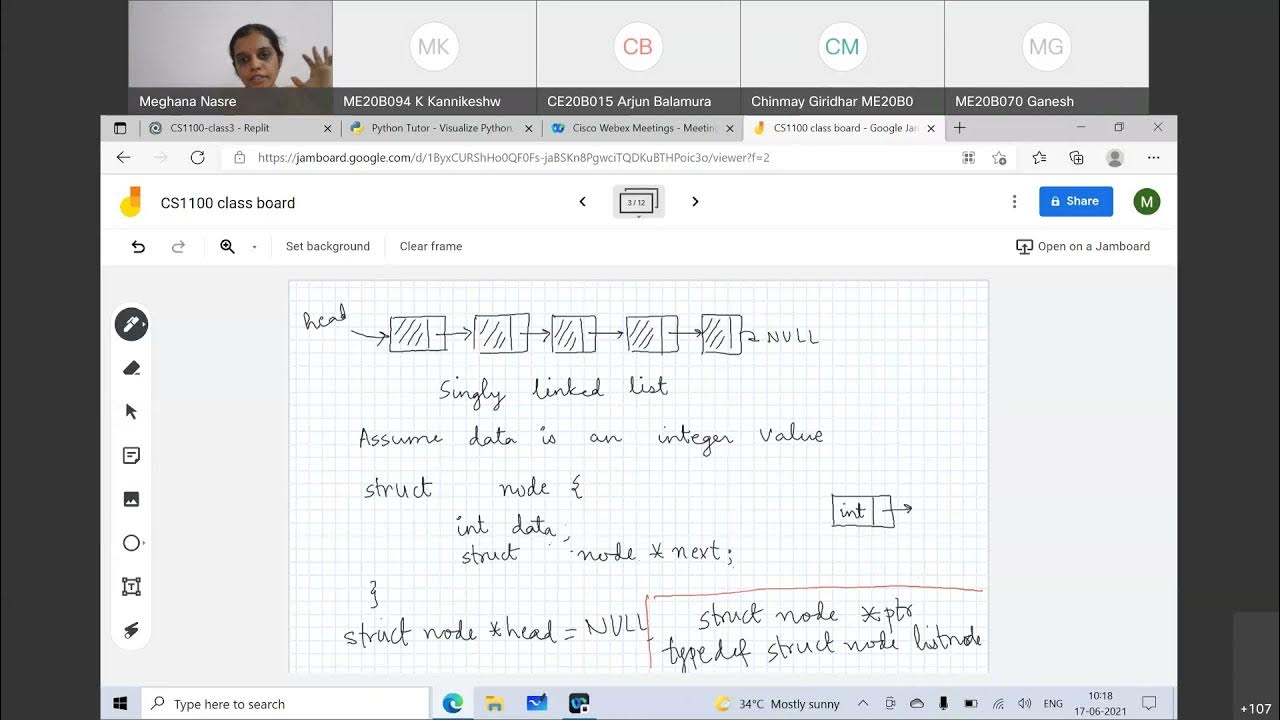 MK
CB
CM
MG
Meghana Nasre
ME20B094 K Kannikeshw
CE20B015 Arjun Balamura
Chinmay Giridhar ME20B0
ME20B070 Ganesh
CS1100-class3 - Replit
Python Tutor - Visualize Python,
Cisco Webex Meetings - Meeting
CS1100 class board - Google Jam
https://jamboard.google.com/d/1ByxCURShHo0QF0Fs-jaBSKn8PgwciTQDKuBTHPoic3o/viewer?f=2
CS1100 class board
3 / 12
Share
M
Set background
Clear frame
Open on a Jamboard
head
NULL
Singly linked list
Assume data is an integer value
struct node {
int data;
int
struct node *next;
}
struct node *head = NULL
struct node *ptr
typedef struct node listnode
Type here to search
34°C Mostly sunny
ENG
10:18
17-06-2021
+107